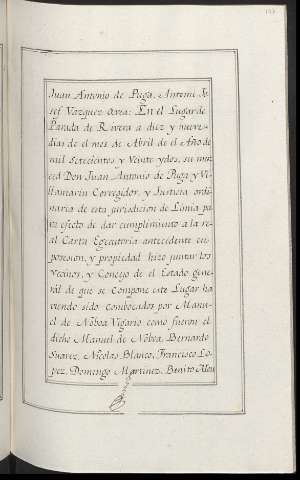 Juan Antonio de Puga, Antemi Jo
sef Vazquez Avea: En el Lugar de
Parada de Rivera a diez y nueve
dias de el mes de Abril de el Año de
mil Setecientos y Veinte y dos, su mer
ced Don Juan Antonio de Puga y Vi
llamarin Corregidor, y Justicia ordi
naria de esta jurisdicion de Limia pa
ra efecto de dar cumplimiento a la re
al Carta Egecutoria antecedente en
posesion, y propiedad hizo juntar los
Vecinos, y Concejo de el Estado gene
rál de que se Compone este Lugar ha
viendo sido combocados por Manu
el de Nóboa Vigario como fueron el
dicho Manuel de Nóboa, Bernardo
Suarez, Nicolas Blanco, Francisco Lo
pez, Domingo Martinez, Benito Alon